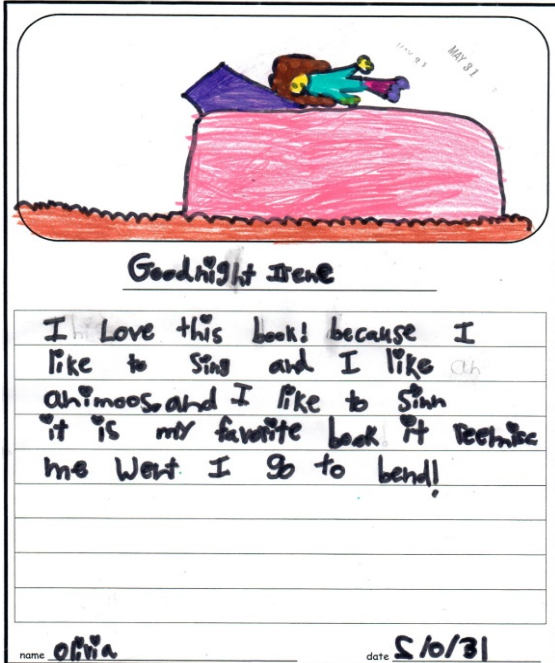 MAY 31
Goodnight Irene
I Love this book! because I
like to sing and I like
animoos. and I like to Sinn
it is my favorite book it reemise
me Went I go to bend!
name Olivia
date 5/0/31